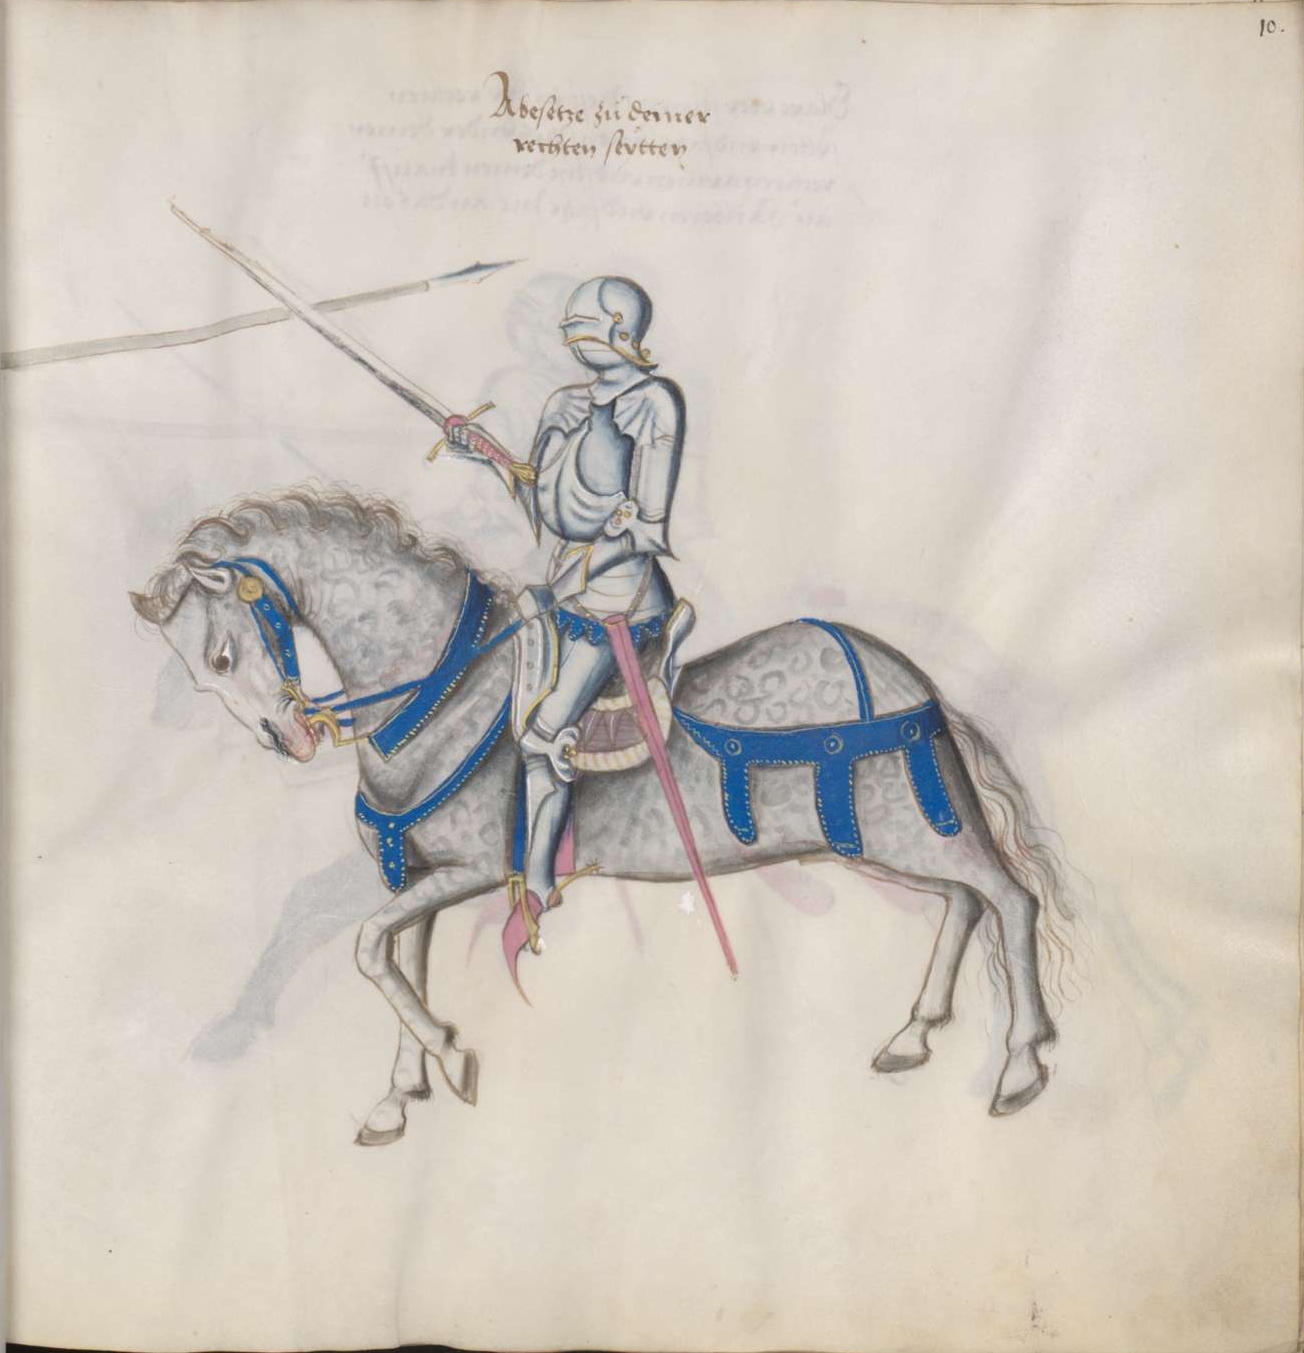 10.
Abesetze zü deiner
rechten seytten